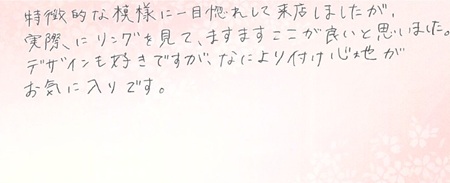 特徴的な模様に一目惚れして来店しましたが、
実際にリングを見て、ますますここが良いと思いました。
デザインも好きですが、なにより付け心地が
お気に入りです。